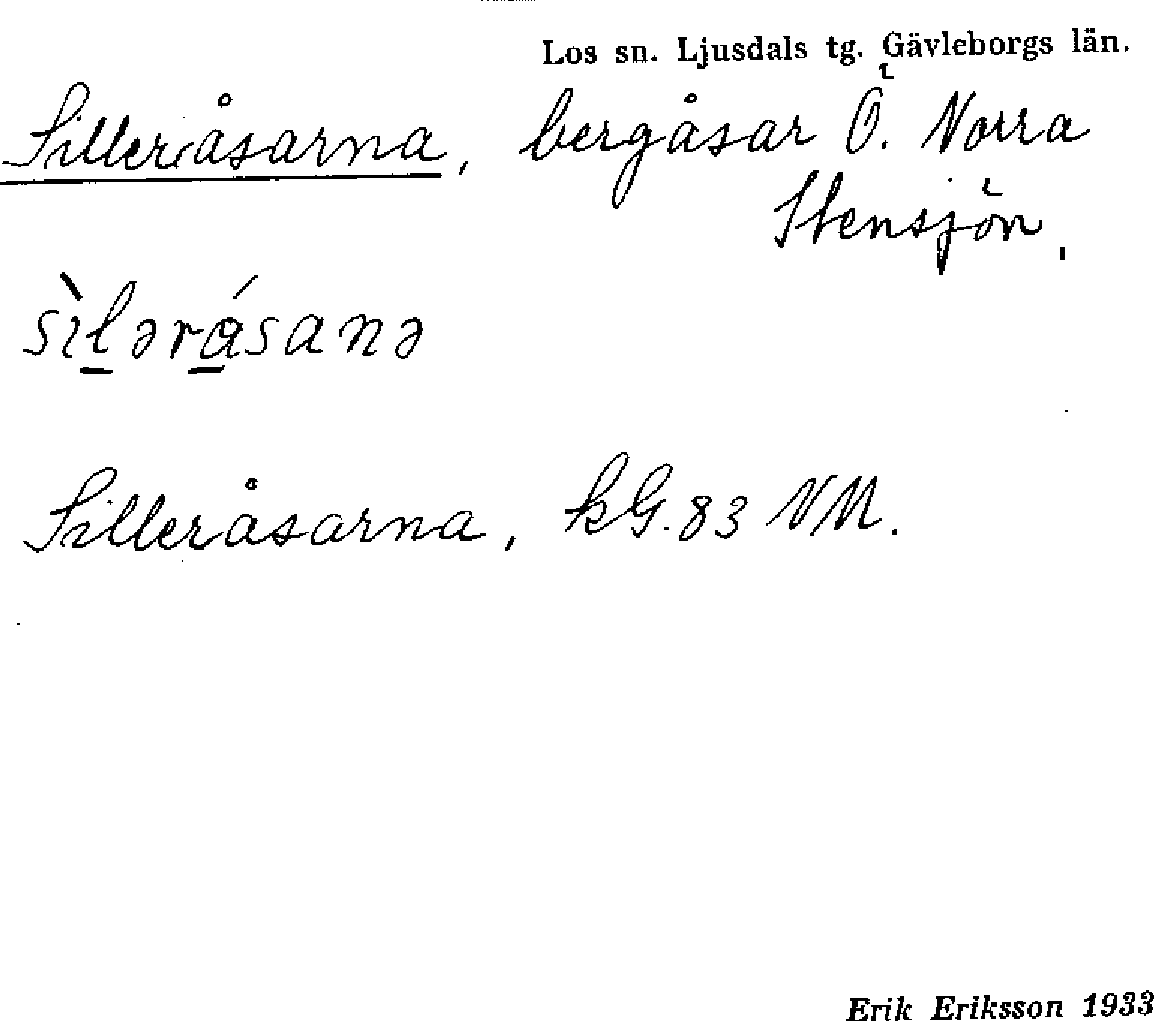 Los sn. Ljusdals tg. Gävleborgs län.
Silleråsarna, bergåsar Ö. Norra
Stensjön.
sìlərásanə
Silleråsarna, kG. 83 NM.
Erik Eriksson 1933